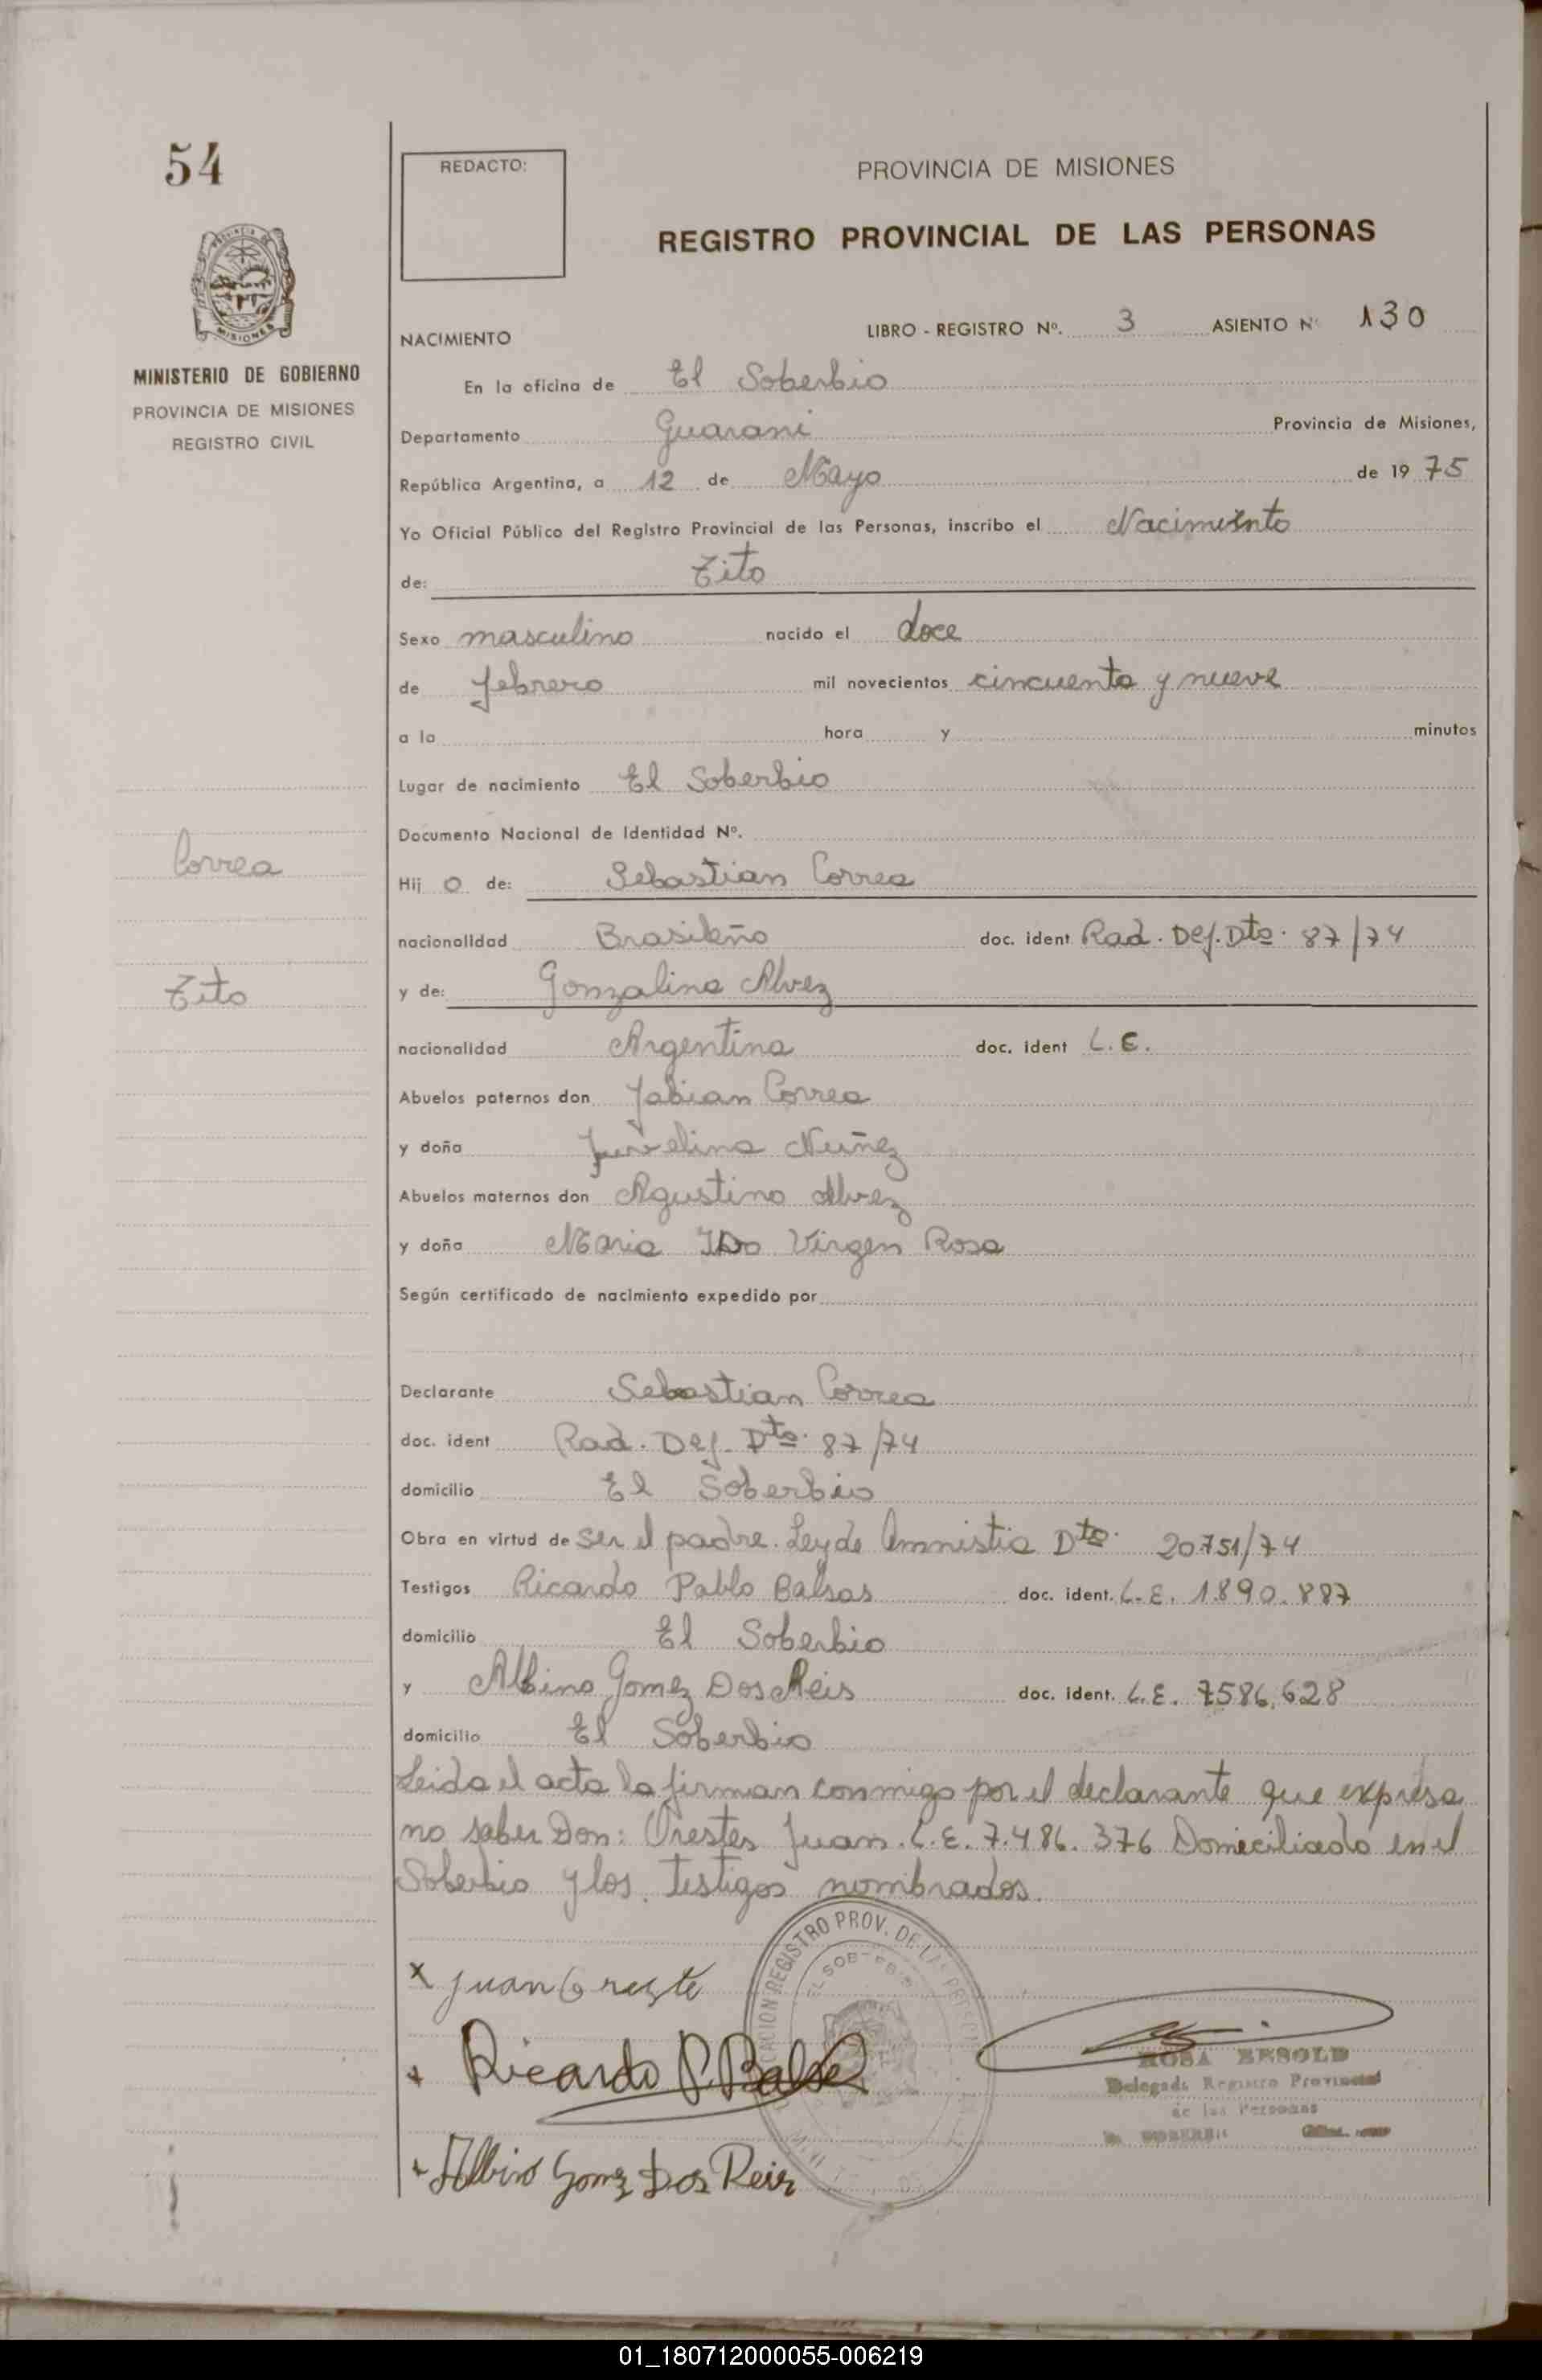 54
REDACTO:
PROVINCIA DE MISIONES
REGISTRO PROVINCIAL DE LAS PERSONAS
MINISTERIO DE GOBIERNO
PROVINCIA DE MISIONES
REGISTRO CIVIL
NACIMIENTO LIBRO - REGISTRO Nº. 3 ASIENTO Nº 130
En la oficina de El Soberbio
Departamento Guarani Provincia de Misiones,
República Argentina, a 12 de Mayo de 1975
Yo Oficial Público del Registro Provincial de las Personas, inscribo el Nacimiento
de: Tito
Sexo masculino nacido el doce
de febrero mil novecientos cincuenta y nueve
a la hora y minutos
Lugar de nacimiento El Soberbio
Documento Nacional de Identidad Nº.
Correa
Hijo de: Sebastian Correa
nacionalidad Brasileño doc. ident Rad. Def. Dto. 87/74
Tito
y de: Gonzalina Alvez
nacionalidad Argentina doc. ident L.E.
Abuelos paternos don Fabian Correa
y doña Nuñez
Abuelos maternos don Agustino Alvez
y doña Maria Virgen Rosa
Según certificado de nacimiento expedido por
Declarante Sebastian Correa
doc. ident Rad. Def. Dto. 87/74
domicilio El Soberbio
Obra en virtud de ser el padre. Ley de Amnistia Dto. 20751/74
Testigos Ricardo Pablo Balsas doc. ident. L.E. 1.890.887
domicilio El Soberbio
y Albino Gomez Dos Reis doc. ident. L.E. 7586,628
domicilio El Soberbio
Leida el acta la firman conmigo por el declarante que expresa
no saber Don: Orestes Juan. L.E. 7.486.376 Domiciliado en el
Soberbio y los testigos nombrados.
x Juan Oreste
REGISTRO PROV. DE LAS PERSONAS
EL SOBERBIO
+ Ricardo P. Balsa
ROSA BESOLD
Delegada Registro Provincial
de las Personas
+ Albino Gomez Dos Reis
01_180712000055-006219